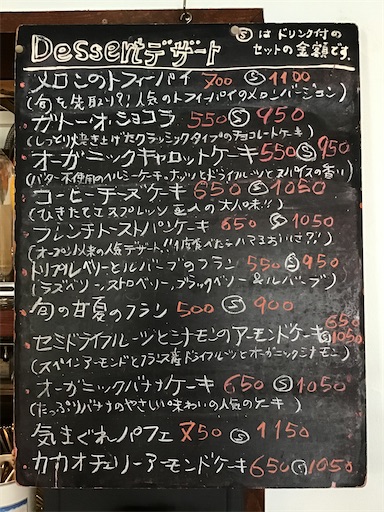 Dessertデザート
Ⓢはドリンク付の
セットの金額です。
メロンのトフィーパイ 700 Ⓢ1100
(旬を先取り?!人気のトフィーパイのメロンバージョン)
ガトー・オ・ショコラ 550 Ⓢ950
(しっとり焼き上げたクラッシックタイプのチョコレートケーキ)
オーガニックキャロットケーキ 550 Ⓢ950
(バター不使用のヘルシーケーキ。ナッツとドライフルーツとスパイスの香り)
コーヒーチーズケーキ 650 Ⓢ1050
(ひきたてエスプレッソ豆入の大人味!!)
フレンチトーストパンケーキ 650 Ⓢ1050
(オープン以来の人気デザート!!1度食べたらハマるおいしさ?!)
トリプルベリーとルバーブのフラン 550 Ⓢ950
(ラズベリー、ストロベリー、ブラックベリー&ルバーブ)
旬の甘夏のフラン 500 Ⓢ900
セミドライフルーツとシナモンのアーモンドケーキ 650 Ⓢ1050
(スペインアーモンドとフランス産ドライフルーツとオーガニックシナモン)
オーガニックバナナケーキ 650 Ⓢ1050
(たっぷりバナナのやさしい味わいの人気のケーキ)
気まぐれパフェ 750 Ⓢ1150
カカオチェリーアーモンドケーキ 650 Ⓢ1050